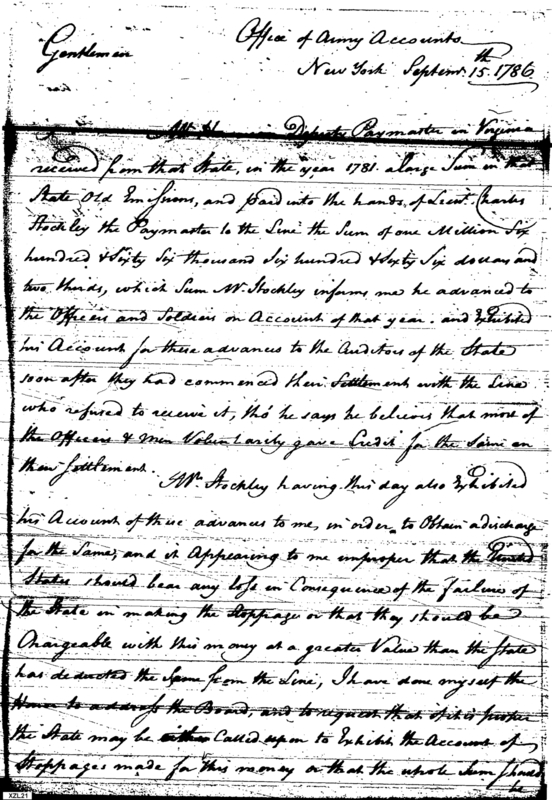 Office of Army Accounts
Gentlemen
New York Septemr. 15.th 1786
Mr. Deputy Paymaster in Virginia
received from that State, in the year 1781. a large Sum in that
State Old Emissions, and paid into the hands, of Lieut. Charles
Stockley the Paymaster to the Line the Sum of one Million Six
hundred & Sixty Six thousand Six hundred & Sixty Six dollars and
two thirds, which Sum Mr. Stockley informs me he advanced to
the Officers and Soldiers on Account of that year. and Exhibited
his Account for these advances to the Auditors of the State
soon after they had commenced their Settlement with the Line
who refused to receive it, tho' he says he believes that most of
the Officers & Men Voluntarily gave Credit for the Same on
their Settlement.
Mr. Stockley having this day also Exhibited
his Account of these advances to me, in order to Obtain a discharge
for the Same, and it Appearing to me improper that the United
States should bear any loss in Consequence of the failure of
the State in making the Stoppage or that they should be
Chargeable with this money at a greater Value than the State
has deducted the Same from the Line, I have done myself the
Honor to address the Board, and to request that if it is proper
the State may be either Called upon to Exhibit the Account of
Stoppages made for this money or that the whole Sum should
be
XZL21